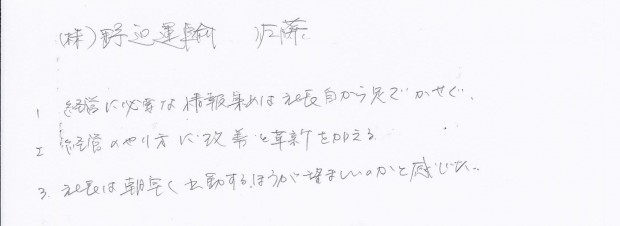 (株)野辺運輸 佐藤
1 経営に必要な情報集めは社長自から足でかせぐ。
2 経営のやり方に改善と革新を加える
3. 社長は朝早く出勤するほうが望ましいのかと感じた。